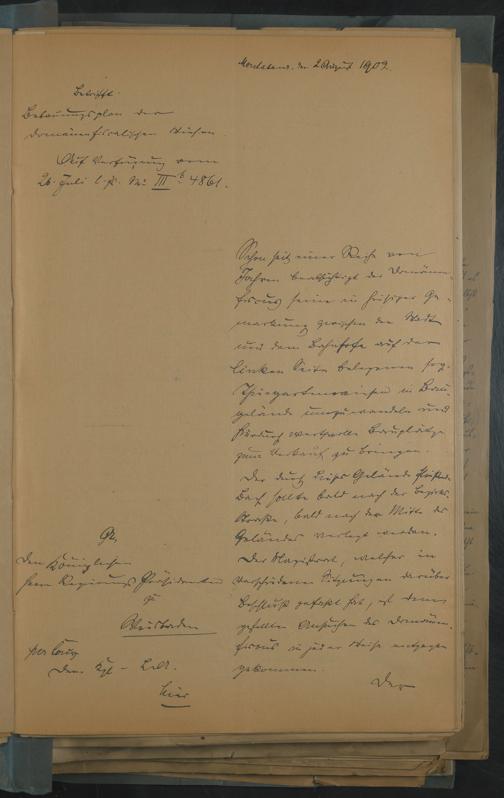 Montabaur, den 2 August 1902.
Betrifft.
Bebauungsplan der
domänenfiscalischen Wiesen.
Auf Verfügung vom
26. Juli l. J. No III b. 4861.
Schon seit einer Reihe von
Jahren beabsichtigt der Domänen-
fiscus seine in hiesiger Ge-
markung zwischen der Stadt
und dem Bahnhofe auf der
linken Seite belegenen sog.
Thiergartenwiesen in Bau-
gelände umzuwandeln und
hierdurch wertvolle Bauplätze
zum Verkauf zu bringen.
Der durch dieses Gelände fließende
Bach sollte bald nach der Bezirks-
straße, bald nach der Mitte des
Geländes verlegt werden.
Der Magistrat, welcher in
verschiedenen Sitzungen darüber
Beschluß gefaßt hat, ist dem
gestellten Ansuchen des Domänen-
fiscus in jeder Weise entgegen
gekommen.
Der
An
den Königlichen
Herrn Regierungs Präsidenten
zu
Wiesbaden
per Couv
den Kgl. Ldr.
hier